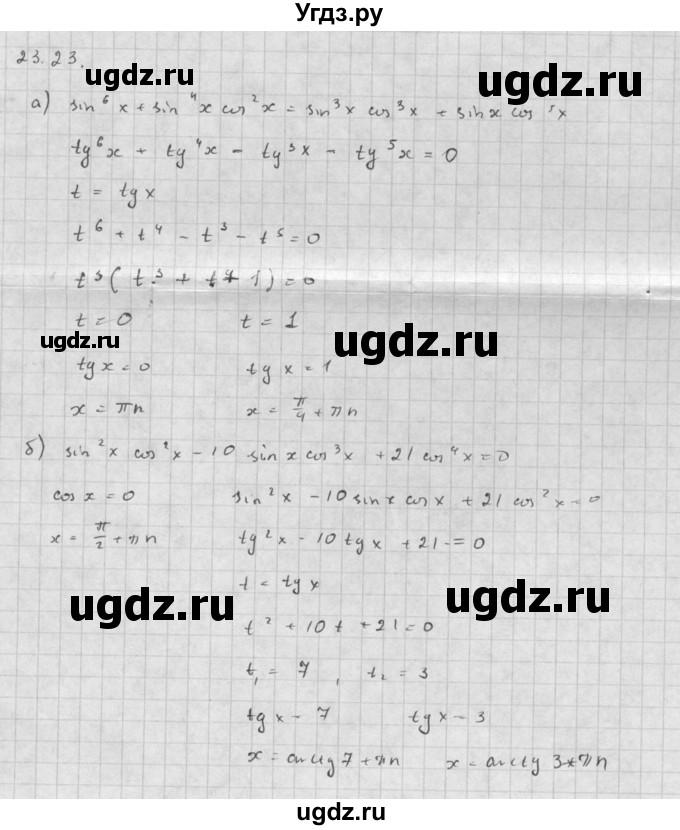 Угдз.ру
23.23.
а) sin⁶x + sin⁴x cos²x = sin³x cos³x + sin x cos⁵x
tg⁶x + tg⁴x - tg³x - tg⁵x = 0
t = tg x
t⁶ + t⁴ - t³ - t⁵ = 0
t³(t³ + t + 1) = 0
t = 0 t = 1
ugdz.ru ugdz.ru
tg x = 0 tg x = 1
x = πn x = π/4 + πn
б) sin²x cos²x - 10 sin x cos³x + 21 cos⁴x = 0
cos x = 0 sin²x - 10 sin x cos x + 21 cos²x = 0
x = π/2 + πn tg²x - 10 tg x + 21 = 0
t = tg x
ugdz.ru ugdz.ru
t² + 10t + 21 = 0
t₁ = 7, t₂ = 3
tg x - 7 tg x - 3
x = arctg 7 + πn x = arctg 3 + πn
ugdz.ru ugdz.ru
ugdz.ru